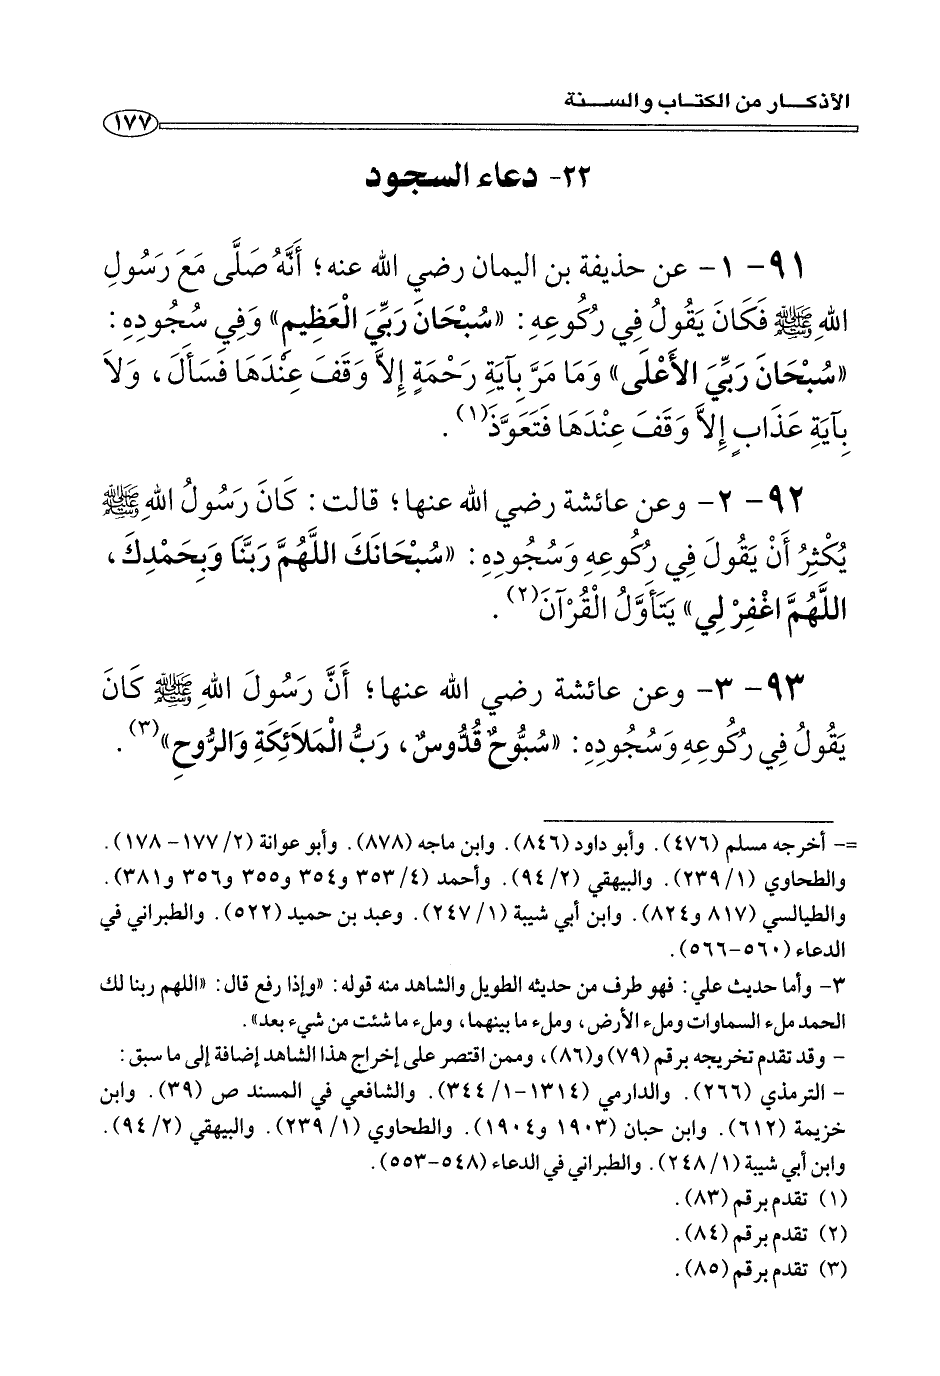 الأذكـــار من الكتـاب والســـنة
١٧٧
٢٢- دعاء السجود
٩١- ١- عن حذيفة بن اليمان رضي الله عنه؛ أَنَّهُ صَلَّى مَعَ رَسُولِ
اللهِ ﷺ فَكَانَ يَقُولُ فِي رُكُوعِهِ: «سُبْحَانَ رَبِّيَ الْعَظِيم» وَفِي سُجُودِهِ:
«سُبْحَانَ رَبِّيَ الأَعْلَى» وَمَا مَرَّ بِآيَةِ رَحْمَةٍ إِلاَّ وَقَفَ عِنْدَهَا فَسَأَلَ، وَلاَ
بِآيَةِ عَذَابٍ إِلاَّ وَقَفَ عِنْدَهَا فَتَعَوَّذَ(١).
٩٢- ٢- وعن عائشة رضي الله عنها؛ قالت: كَانَ رَسُولُ اللهِ ﷺ
يُكْثِرُ أَنْ يَقُولَ فِي رُكُوعِهِ وَسُجُودِهِ: «سُبْحَانَكَ اللَّهُمَّ رَبَّنَا وَبِحَمْدِكَ،
اللَّهُمَّ اغْفِرْ لِي» يَتَأَوَّلُ الْقُرْآنَ(٢).
٩٣- ٣- وعن عائشة رضي الله عنها؛ أَنَّ رَسُولَ اللهِ ﷺ كَانَ
يَقُولُ فِي رُكُوعِهِ وَسُجُودِهِ: «سُبُّوحٌ قُدُّوسٌ، رَبُّ الْمَلاَئِكَةِ وَالرُّوحِ»(٣).
=- أخرجه مسلم (٤٧٦). وأبو داود (٨٤٦). وابن ماجه (٨٧٨). وأبو عوانة (٢/ ١٧٧- ١٧٨).
والطحاوي (١/ ٢٣٩). والبيهقي (٢/ ٩٤). وأحمد (٤/ ٣٥٣ و٣٥٤ و٣٥٥ و٣٥٦ و٣٨١).
والطيالسي (٨١٧ و٨٢٤). وابن أبي شيبة (١/ ٢٤٧). وعبد بن حميد (٥٢٢). والطبراني في
الدعاء (٥٦٠-٥٦٦).
٣- وأما حديث علي: فهو طرف من حديثه الطويل والشاهد منه قوله: «وإذا رفع قال: «اللهم ربنا لك
الحمد ملء السماوات وملء الأرض، وملء ما بينهما، وملء ما شئت من شيء بعد».
- وقد تقدم تخريجه برقم (٧٩) و(٨٦)، وممن اقتصر على إخراج هذا الشاهد إضافة إلى ما سبق:
- الترمذي (٢٦٦). والدارمي (١٣١٤-١/ ٣٤٤). والشافعي في المسند ص (٣٩). وابن
خزيمة (٦١٢). وابن حبان (١٩٠٣ و١٩٠٤). والطحاوي (١/ ٢٣٩). والبيهقي (٢/ ٩٤).
وابن أبي شيبة (١/ ٢٤٨). والطبراني في الدعاء (٥٤٨-٥٥٣).
(١) تقدم برقم (٨٣).
(٢) تقدم برقم (٨٤).
(٣) تقدم برقم (٨٥).